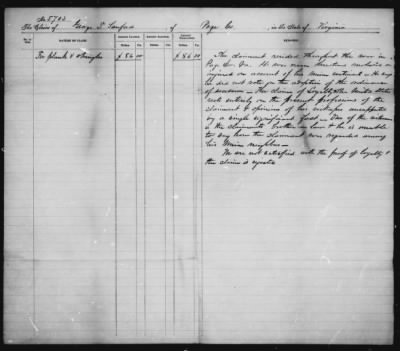 No. 5783
The Claim of George S. Sanford of Page Co. , in the State of Virginia
NATURE OF CLAIM. Amount Claimed. Amount Allowed. Amount Disallowed. REMARKS.
Dollars Cents Dollars Cents Dollars Cents
For plank & shingles $ 86 00 $ 86 00
The claimant resided throughout the war in
Page Co. Va. He was never threatened molested or
injured on account of his Union sentiments. He says
he did not vote on the adoption of the ordinance
of secession. This claim of Loyalty to the United States
rests entirely on the present professions of the
claimant & opinions of his witnesses unsupported
by a single significant fact. One of the witnesses
is the claimants brother in law & he is unable
to say how the claimant was regarded among
his Union neighbors.
We are not satisfied with the proof of loyalty &
the claim is rejected